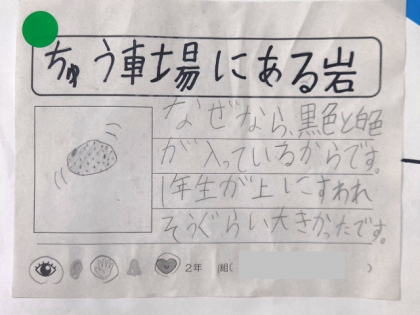 ちゅう車場にある岩
なぜなら、黒色と白色
が入っているからです。
1年生が上にすわれ
そうぐらい大きかったです。
2年 組( )